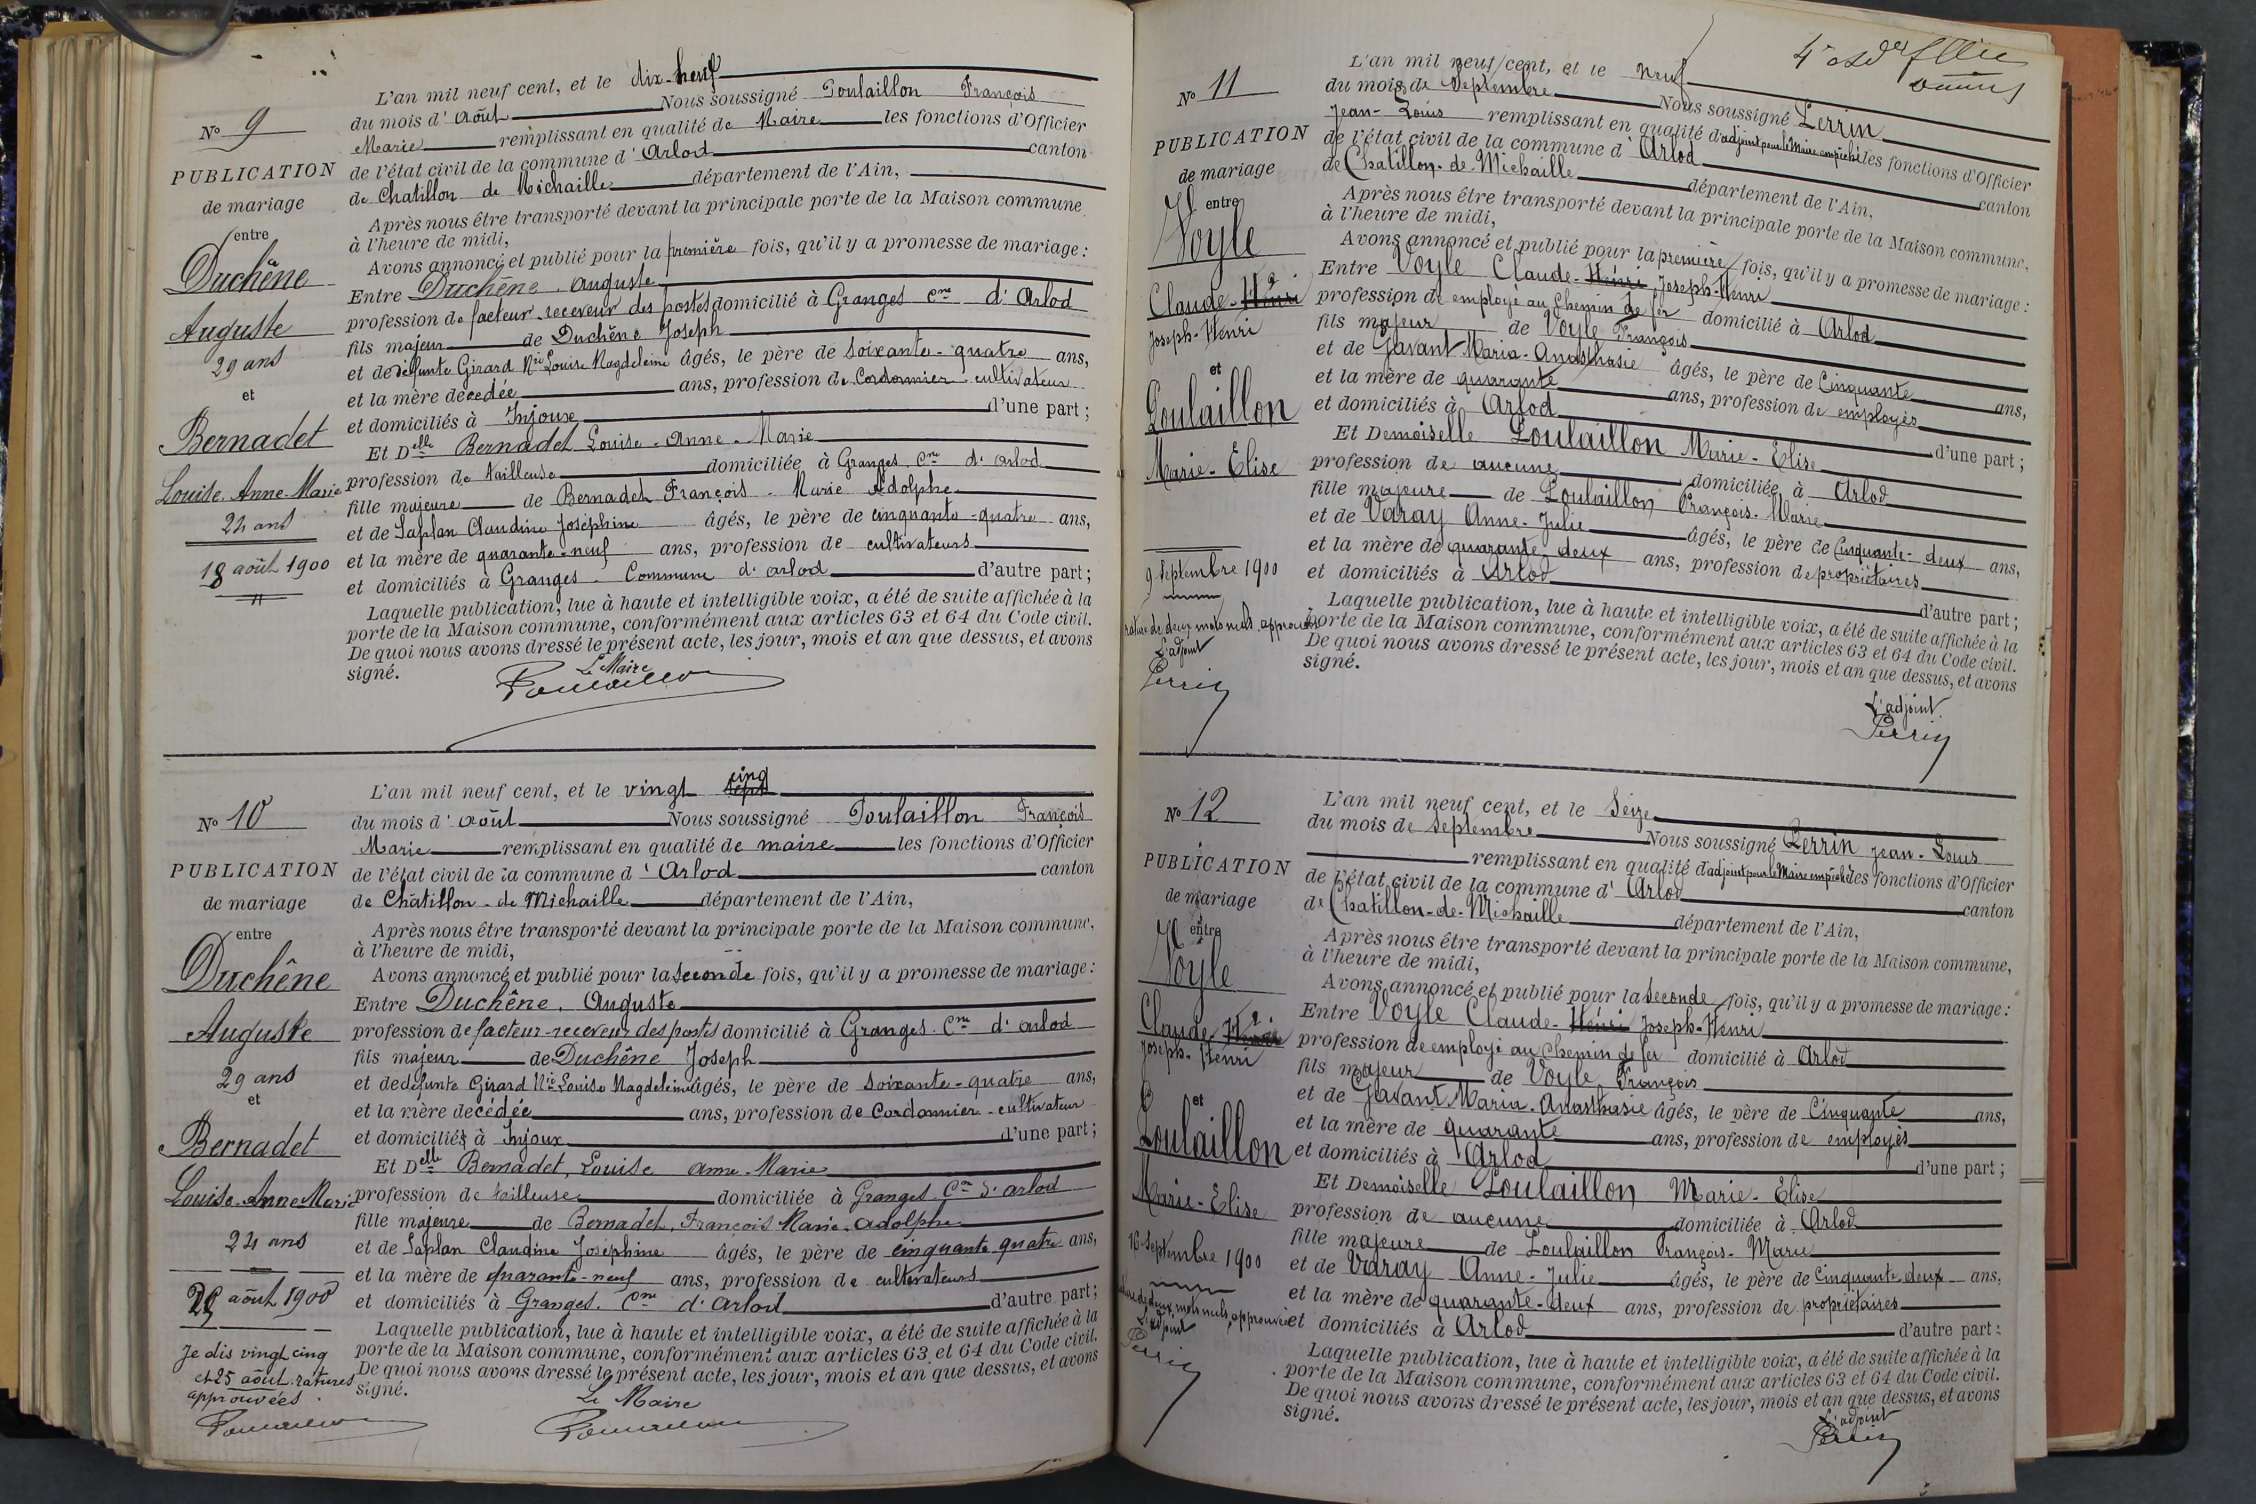 N° 9
PUBLICATION
de mariage
entre
Duchêne
Auguste
29 ans
et
Bernadet
Louise-Anne-Marie
24 ans
18 août 1900
L'an mil neuf cent, et le dix-neuf
du mois d'août Nous soussigné Poulaillon François
Marie remplissant en qualité de Maire les fonctions d'Officier
de l'état civil de la commune d'Arlod canton
de Chatillon de Michaille département de l'Ain,
Après nous être transporté devant la principale porte de la Maison commune
à l'heure de midi,
Avons annoncé et publié pour la première fois, qu'il y a promesse de mariage :
Entre Duchêne. Auguste
profession de facteur-receveur des postes domicilié à Granges Cne d'Arlod
fils majeur de Duchêne Joseph
et de défunte Girard Mie Louise Magdeleine âgés, le père de soixante-quatre ans,
et la mère décédée ans, profession de Cordonnier cultivateur
et domiciliés à Injoux d'une part ;
Et Delle Bernadet Louise-Anne-Marie
profession de tailleuse domiciliée à Granges. Cne d'Arlod
fille majeure de Bernadet François-Marie Adolphe
et de Laplan Claudine Joséphine âgés, le père de cinquante-quatre ans,
et la mère de quarante-neuf ans, profession de cultivateurs
et domiciliés à Granges. Commune d'arlod d'autre part ;
Laquelle publication, lue à haute et intelligible voix, a été de suite affichée à la
porte de la Maison commune, conformément aux articles 63 et 64 du Code civil.
De quoi nous avons dressé le présent acte, les jour, mois et an que dessus, et avons
signé.
Le Maire
Poulaillon
N° 10
PUBLICATION
de mariage
entre
Duchêne
Auguste
29 ans
et
Bernadet
Louise-Anne-Marie
24 ans
août 1900
Je dis vingt cinq
et 25 août. ratures
approuvées.
Poulaillon
L'an mil neuf cent, et le vingt cinq sept
du mois d'août Nous soussigné Poulaillon François
Marie remplissant en qualité de maire les fonctions d'Officier
de l'état civil de la commune d'Arlod canton
de Châtillon-de Michaille département de l'Ain,
Après nous être transporté devant la principale porte de la Maison commune,
à l'heure de midi,
Avons annoncé et publié pour la seconde fois, qu'il y a promesse de mariage :
Entre Duchêne. Auguste
profession de facteur-receveur des postes domicilié à Granges. Cne d'arlod
fils majeur de Duchêne Joseph
et de défunte Girard Mie Louise Magdeleine âgés, le père de soixante-quatre ans,
et la mère décédée ans, profession de Cordonnier-cultivateur
et domiciliés à Injoux d'une part ;
Et Delle Bernadet, Louise anne-Marie
profession de tailleuse domiciliée à Granges. Cne d'arlod
fille majeure de Bernadet, François Marie-adolphe
et de Laplan Claudine Joséphine âgés, le père de cinquante quatre ans,
et la mère de quarante-neuf ans, profession de cultivateurs
et domiciliés à Granges. Cne d'Arlod d'autre part ;
Laquelle publication, lue à haute et intelligible voix, a été de suite affichée à la
porte de la Maison commune, conformément aux articles 63 et 64 du Code civil.
De quoi nous avons dressé le présent acte, les jour, mois et an que dessus, et avons
signé.
Le Maire
Poulaillon
N° 11
PUBLICATION
de mariage
entre
Voyle
Claude-Henri
Joseph-Henri
et
Poulaillon
Marie-Elise
9 Septembre 1900
rature de deux mots nuls, approuvée
L'adjoint
Perrin
L'an mil neuf cent, et le neuf
du mois de Septembre Nous soussigné Perrin
Jean-Louis remplissant en qualité d'adjoint pour le Maire empêché les fonctions d'Officier
de l'état civil de la commune d'Arlod canton
de Chatillon-de-Michaille département de l'Ain,
Après nous être transporté devant la principale porte de la Maison commune,
à l'heure de midi,
Avons annoncé et publié pour la première fois, qu'il y a promesse de mariage :
Entre Voyle Claude-Henri Joseph-Henri
profession de employé au Chemin de fer domicilié à Arlod
fils majeur de Voyle François
et de Javant Maria-Anasthasie âgés, le père de Cinquante ans,
et la mère de quarante ans, profession de employés
et domiciliés à Arlod d'une part ;
Et Demoiselle Poulaillon Marie-Elise
profession de aucune domiciliée à Arlod
fille majeure de Poulaillon François-Marie
et de Varay Anne-Julie âgés, le père de Cinquante-deux ans,
et la mère de quarante-deux ans, profession de propriétaires
et domiciliés à Arlod d'autre part ;
Laquelle publication, lue à haute et intelligible voix, a été de suite affichée à la
porte de la Maison commune, conformément aux articles 63 et 64 du Code civil.
De quoi nous avons dressé le présent acte, les jour, mois et an que dessus, et avons
signé.
L'adjoint
Perrin
N° 12
PUBLICATION
de mariage
entre
Voyle
Claude-Henri
Joseph-Henri
et
Poulaillon
Marie-Elise
16 Septembre 1900
rature de deux mots nuls, approuvée
L'adjoint
Perrin
L'an mil neuf cent, et le Seize
du mois de Septembre Nous soussigné Perrin Jean-Louis
remplissant en qualité d'adjoint pour le Maire empêché les fonctions d'Officier
de l'état civil de la commune d'Arlod canton
de Chatillon-de-Michaille département de l'Ain,
Après nous être transporté devant la principale porte de la Maison commune,
à l'heure de midi,
Avons annoncé et publié pour la seconde fois, qu'il y a promesse de mariage :
Entre Voyle Claude-Henri Joseph-Henri
profession de employé au Chemin de fer domicilié à Arlod
fils majeur de Voyle François
et de Javant Maria-Anasthasie âgés, le père de Cinquante ans,
et la mère de quarante ans, profession de employés
et domiciliés à Arlod d'une part ;
Et Demoiselle Poulaillon Marie-Elise
profession de aucune domiciliée à Arlod
fille majeure de Poulaillon François-Marie
et de Varay Anne-Julie âgés, le père de Cinquante deux ans,
et la mère de quarante-deux ans, profession de propriétaires
et domiciliés à Arlod d'autre part :
Laquelle publication, lue à haute et intelligible voix, a été de suite affichée à la
porte de la Maison commune, conformément aux articles 63 et 64 du Code civil.
De quoi nous avons dressé le présent acte, les jour, mois et an que dessus, et avons
signé.
L'adjoint
Perrin